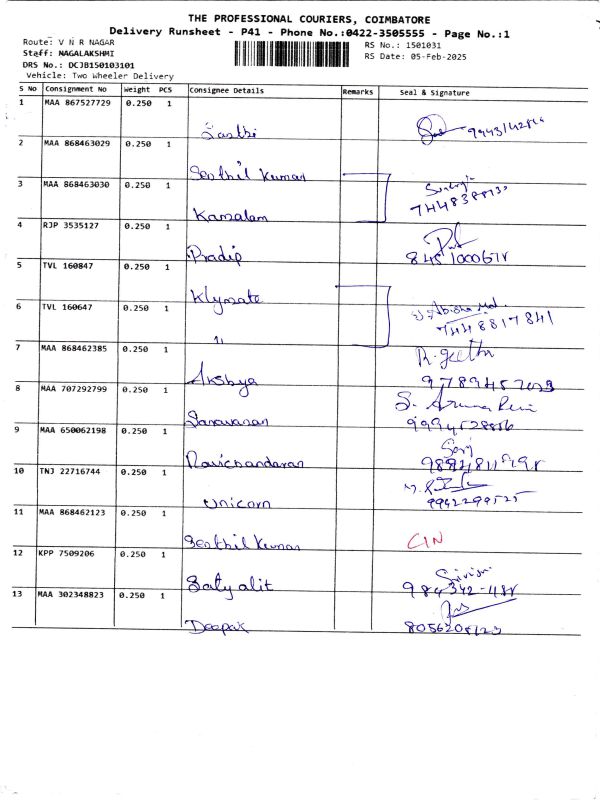 THE PROFESSIONAL COURIERS, COIMBATORE
Delivery Runsheet - P41 - Phone No.:0422-3505555 - Page No.:1
Route: V N R NAGAR
Staff: NAGALAKSHMI
DRS No.: DCJB150103101
Vehicle: Two Wheeler Delivery
RS No.: 1501031
RS Date: 05-Feb-2025
S No Consignment No Weight PCS Consignee Details Remarks Seal & Signature
1 MAA 867527729 0.250 1
Sasthi
2 MAA 868463029 0.250 1
Senthil Kumar
3 MAA 868463030 0.250 1
Kamalam
4 RJP 3535127 0.250 1
Pradip
5 TVL 160847 0.250 1
Klymate
6 TVL 160647 0.250 1
"
7448817841
7 MAA 868462385 0.250 1 R. Geetha
Akshya
8 MAA 707292799 0.250 1
Saravanan
9 MAA 650062198 0.250 1
Ravichandaran
10 TNJ 22716744 0.250 1
Unicorn 9942299525
11 MAA 868462123 0.250 1
Senthil Kumar CIN
12 KPP 7509206 0.250 1
Satyalit
13 MAA 302348823 0.250 1
Deepak